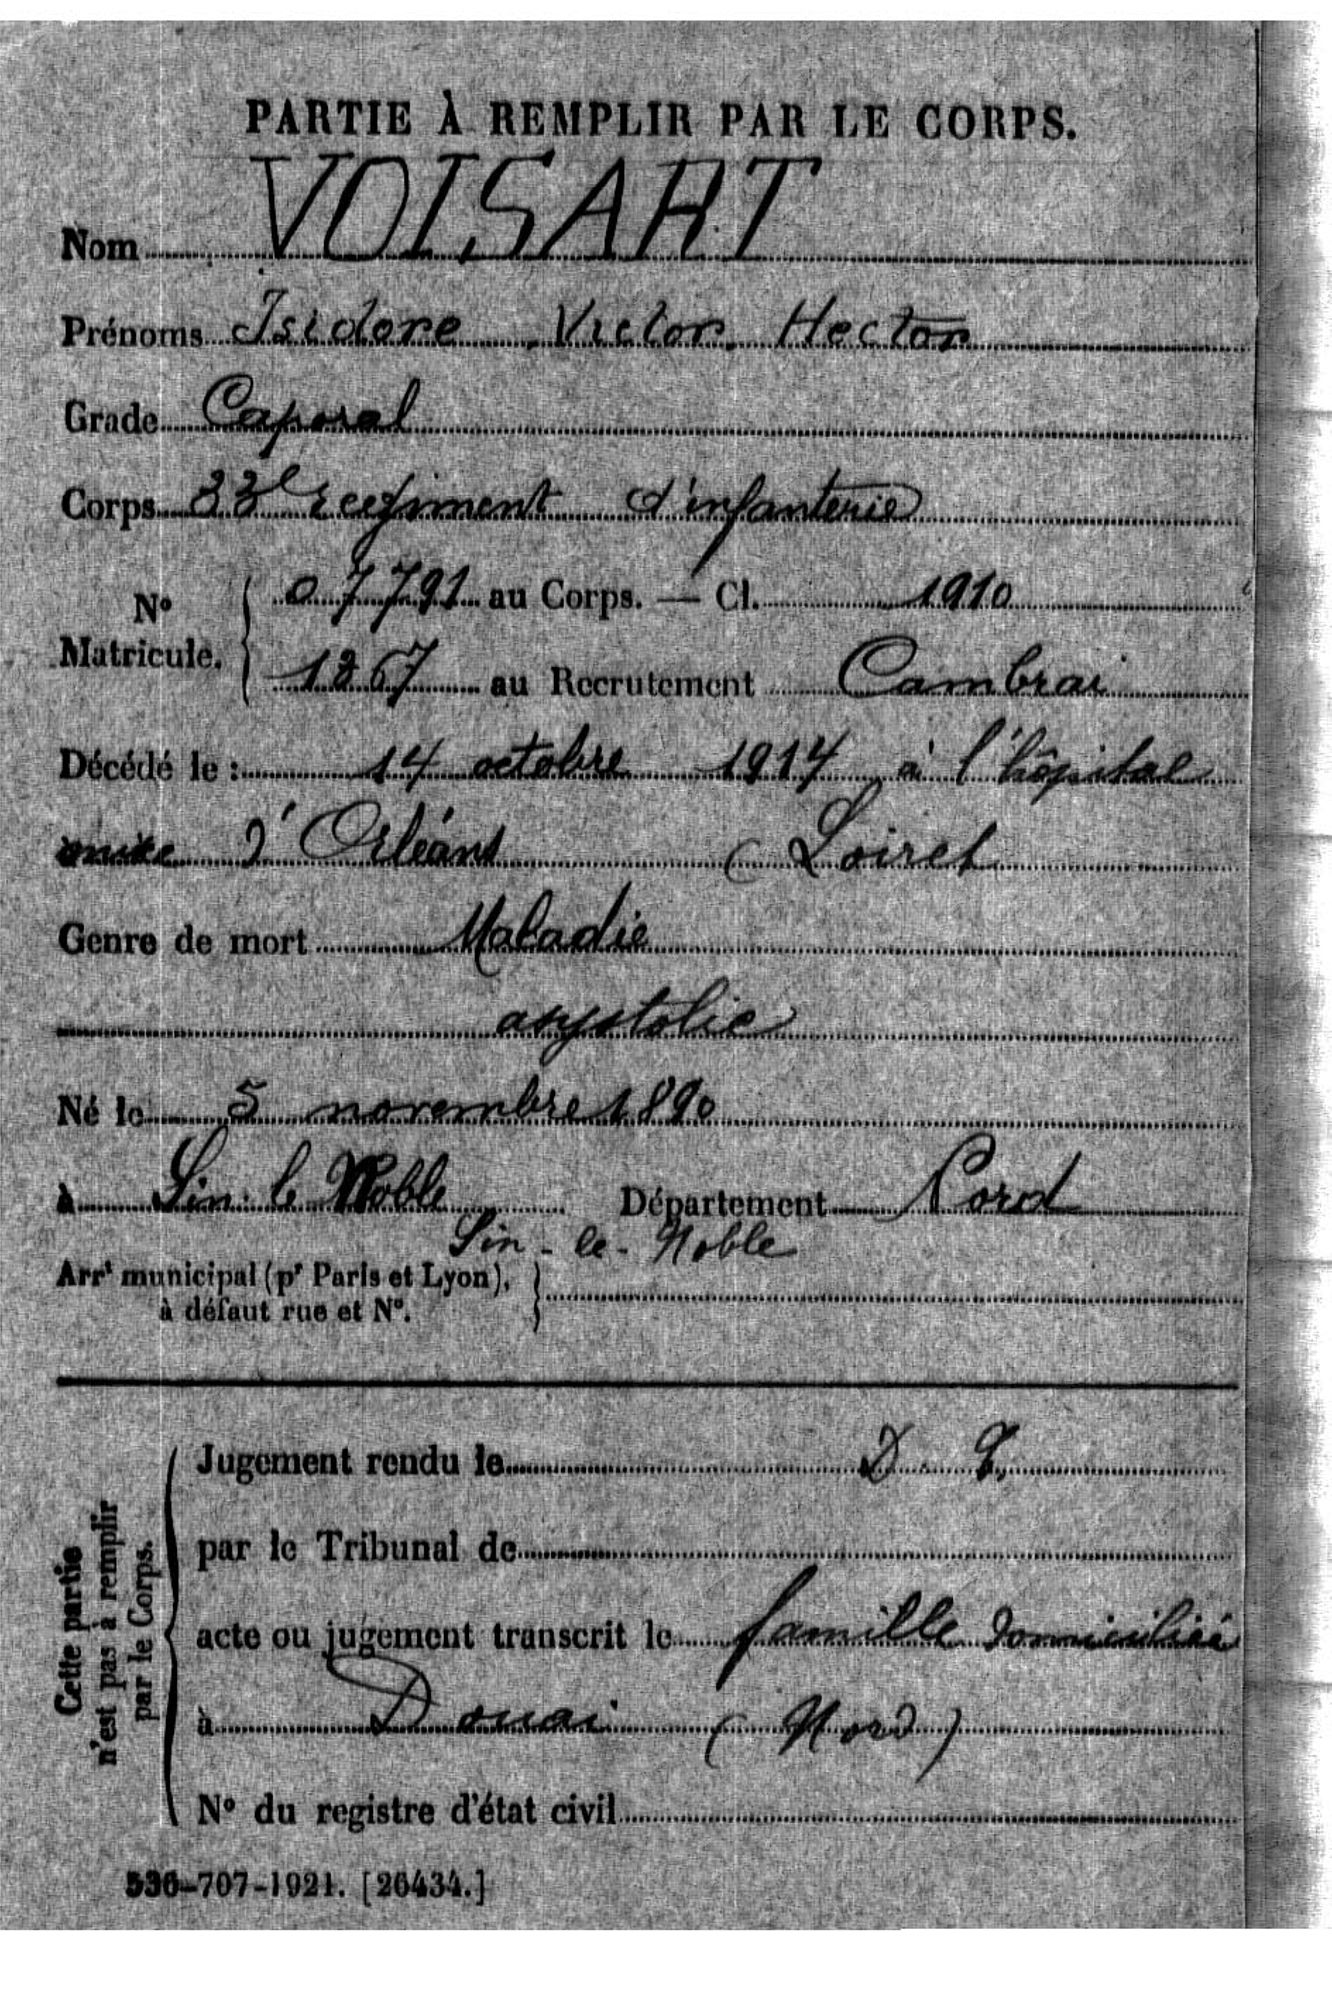 PARTIE À REMPLIR PAR LE CORPS.
Nom VOISART
Prénoms Isidore, Victor, Hector
Grade Caporal
Corps 33e Régiment d'infanterie
No Matricule. { 07791 au Corps. — Cl. 1910
1867 au Recrutement Cambrai
Décédé le : 14 octobre 1914 à l'hôpital
mixte d'Orléans (Loiret
Genre de mort Maladie
asystolie
Né le 5 novembre 1890
à Sin le Noble Département Nord
Sin-le-Noble
Arrt municipal (pr Paris et Lyon), }
à défaut rue et No.
Cette partie n'est pas à remplir par le Corps.
Jugement rendu le D.
par le Tribunal de
acte ou jugement transcrit le famille domiciliée
à Douai (Nord)
No du registre d'état civil
536-707-1921. [26434.]